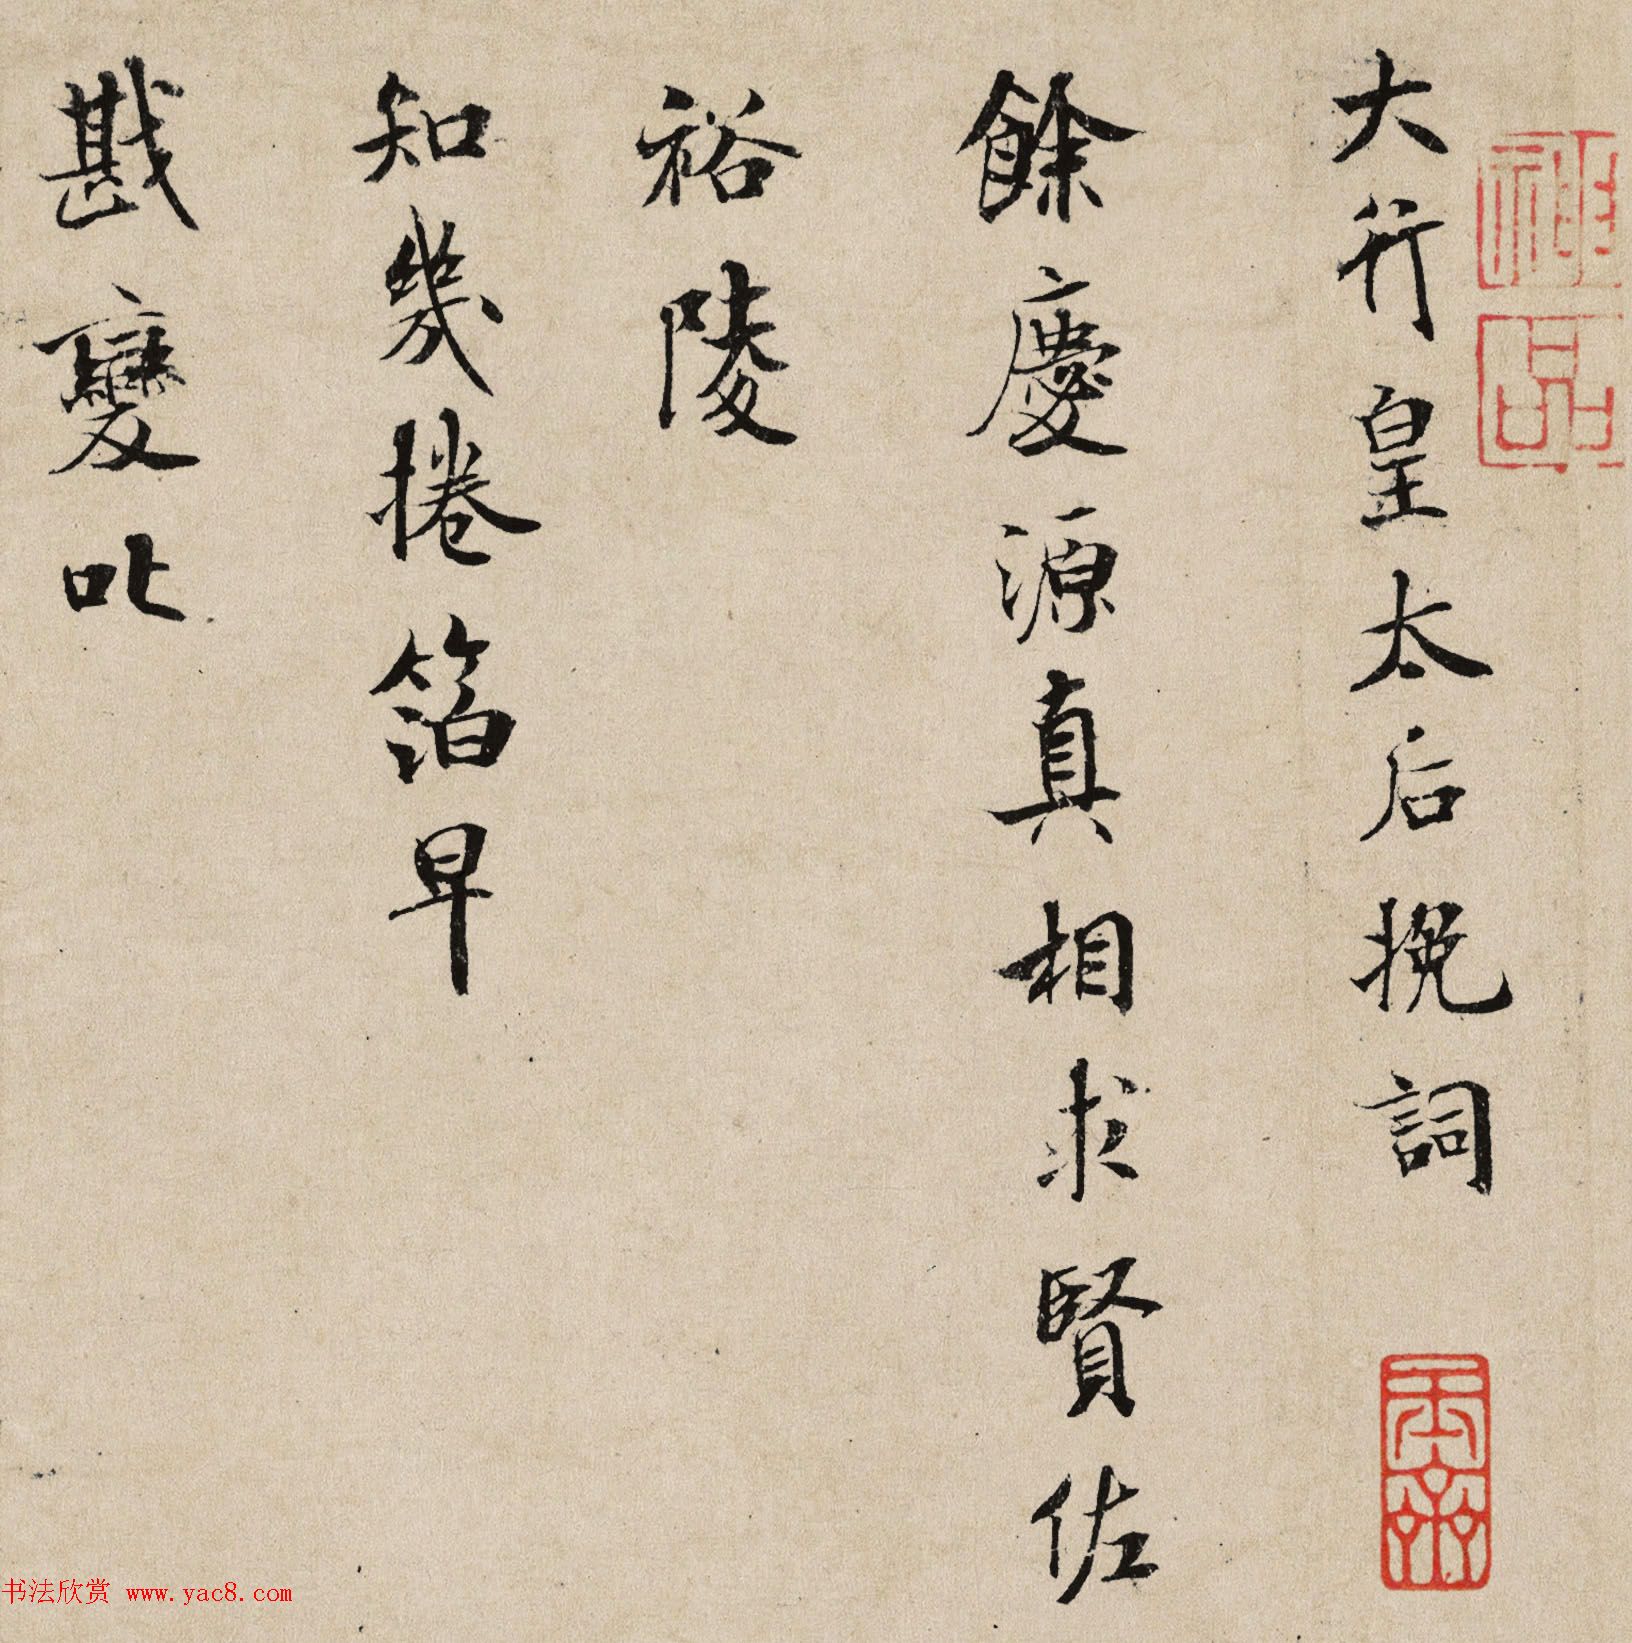 神品
大行皇太后挽詞
餘慶源真相求賢佐
裕陵
知幾捲箔早
戡變叱
书法欣赏 www.yac8.com